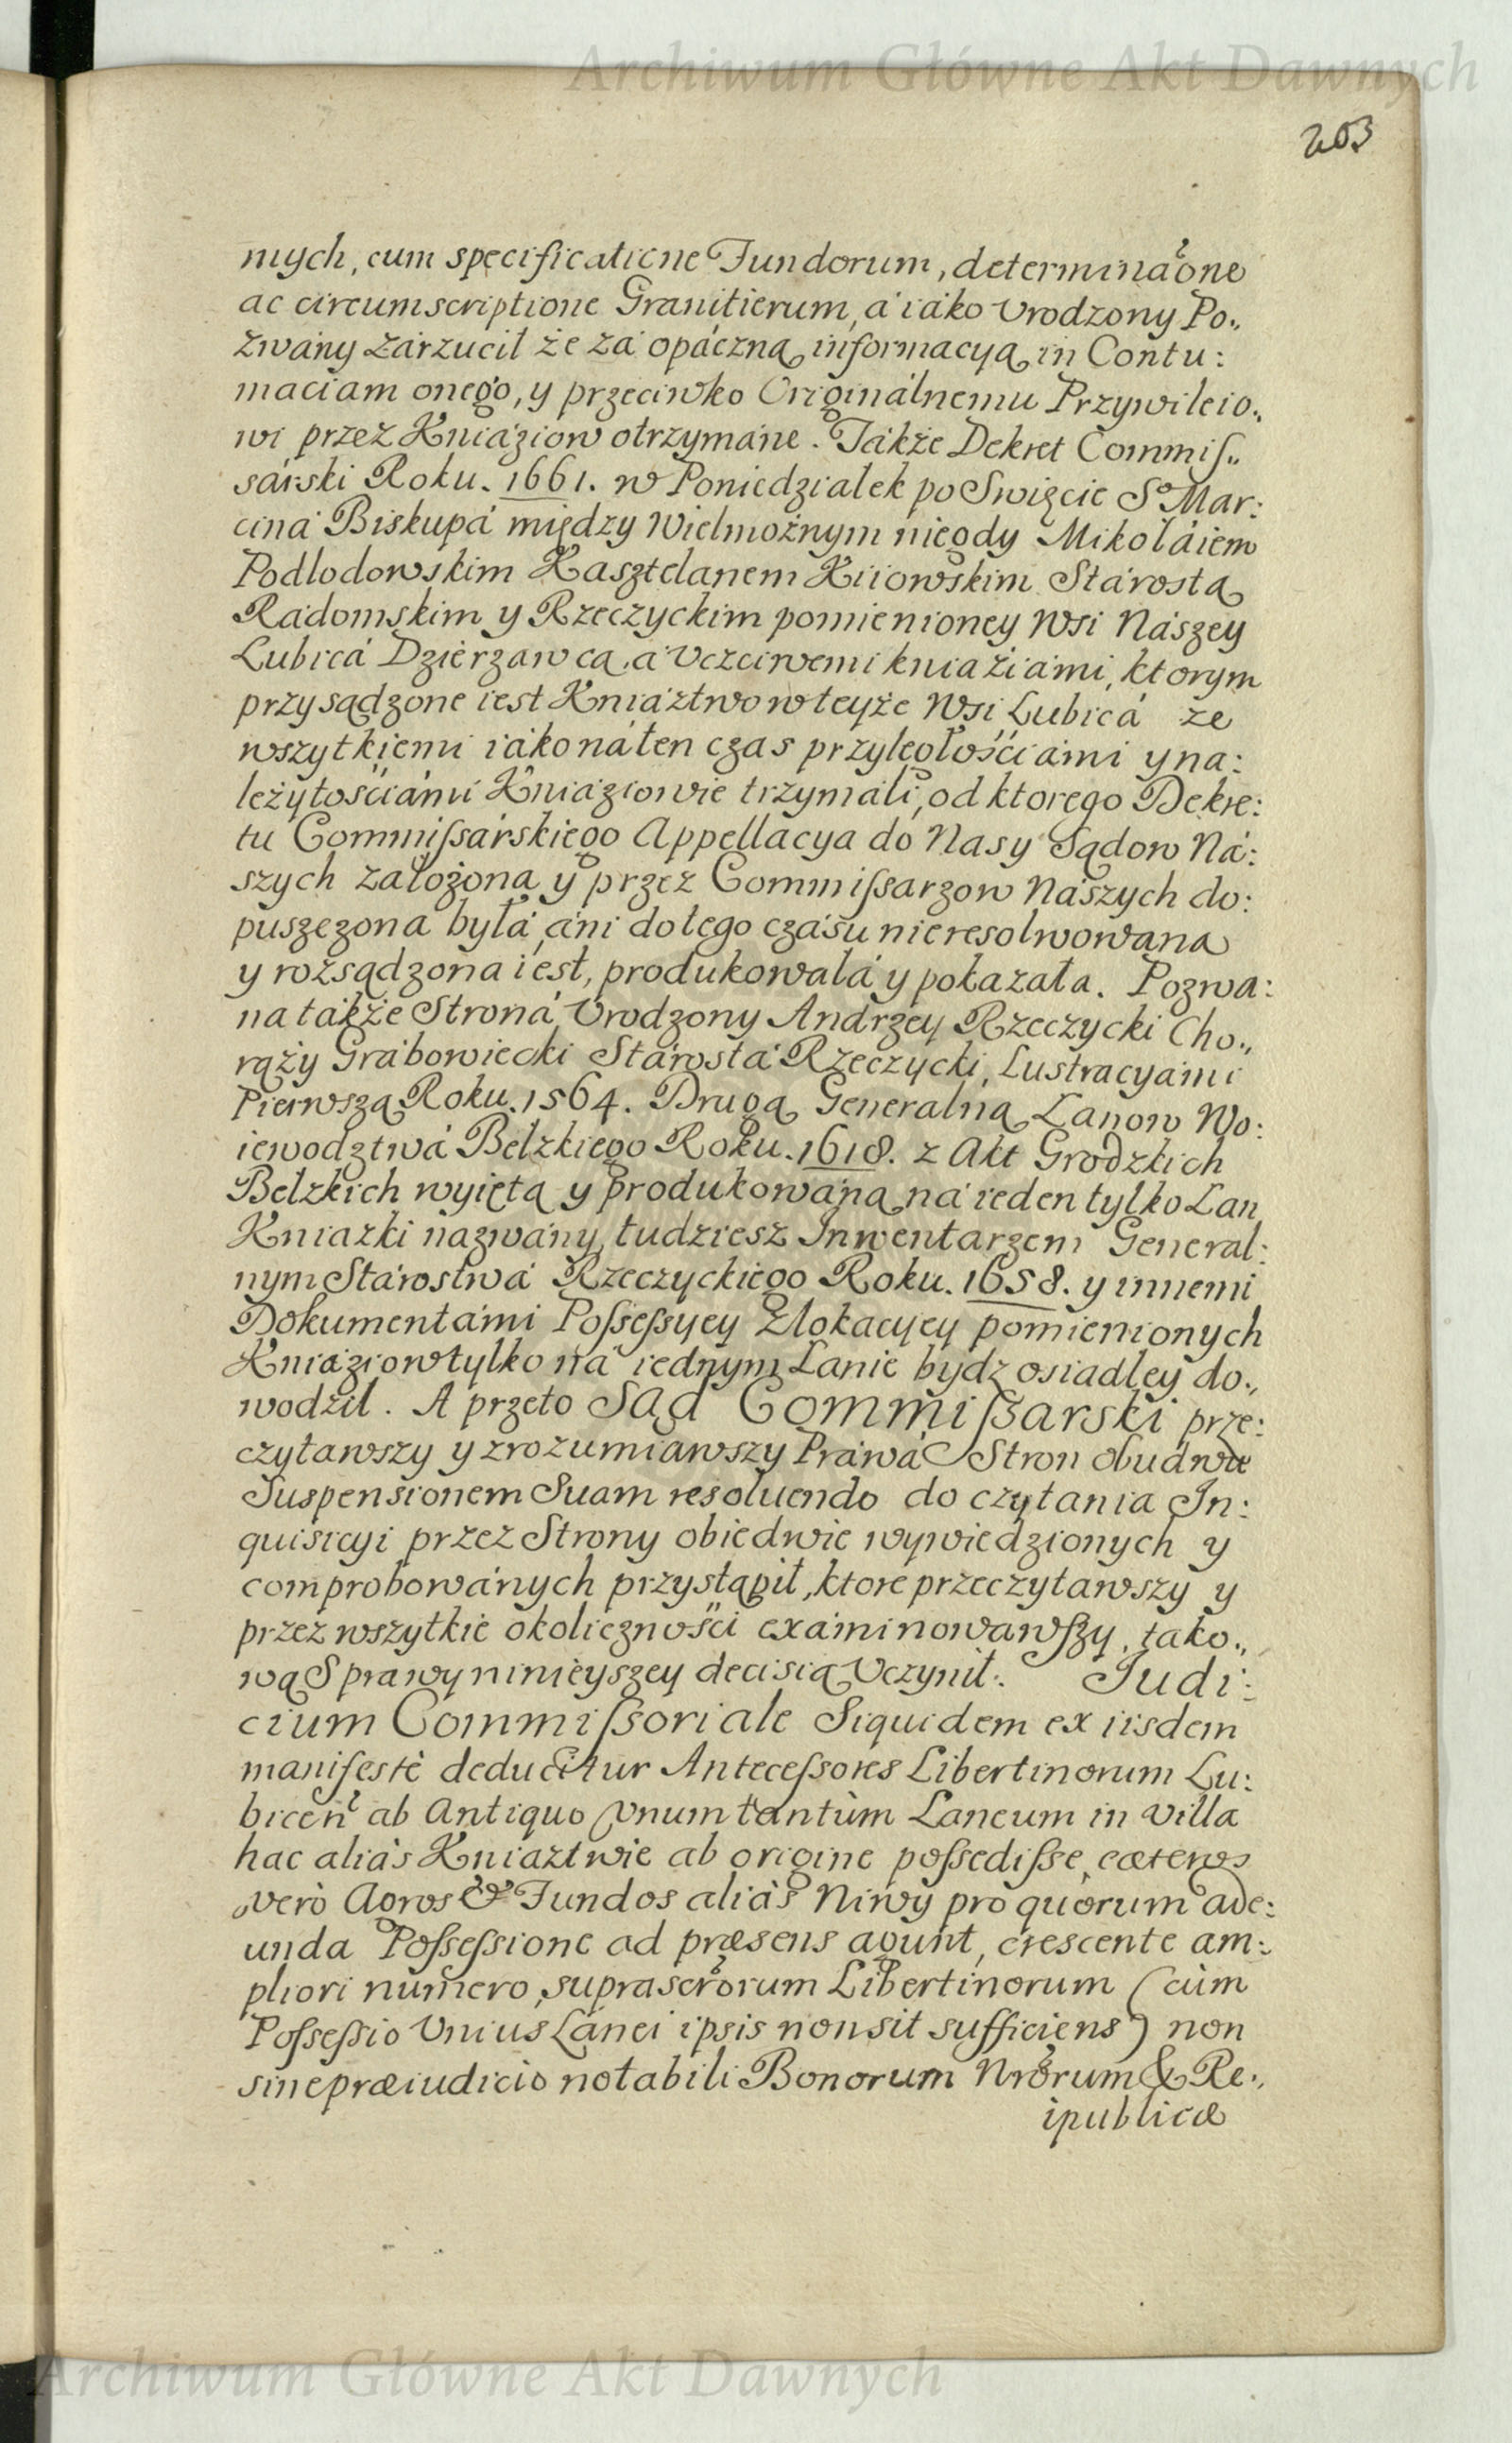 Archiwum Główne Akt Dawnych
203
mych, cum specificatione Fundorum, determinãone
ac circumscriptione Granitierum, á iáko Vrodzony Po„
zwány zárzucił że zá opáczną informacyą in Contu:
maciam onego, y przeciwko Originálnemu Przywileio„
wi przez Kniáziow otrzymáne. Tákże Dekret Commiſ„
sárski Roku. 1661. w Poniedziałek po Swięcie Sº Mar:
ciná Biskupá między Wielmożnym niegdy Mikołáiem
Podlodowskim Kasztelanem Kiiowskim Stárostą
Radomskim y Rzeczyckim pomienioney Wsi Nászey
Lubicá Dzierzawcą, á Vczciwemi kniaźiámi, ktorym
przysądzone iest Kniáztwo w teyże Wsi Lubicá ze
wszytkiemi iáko ná ten czas przyległośćiámi y na:
leżytośćiámi Kniáziowie trzymáli, od ktorego Dekre:
tu Commiſsárskiego Appellacya do Nasy Sądow Ná:
szych záłożona y przez Commiſsarzow Nászych do:
puszczona byłá, áni do tego czásu nie resolwowana
y rozsądzona iest, produkowałá y pokazáła. Pozwa:
na tákże Stroná Vrodzony Andrzey Rzeczycki Cho„
rąży Grábowiecki Stárostá Rzeczycki, Lustracyámi
Pierwszą Roku. 1564. Drugą Generalną Lanow Wo:
iewodztwá Bełzkiego Roku. 1618. z Akt Grodzkich
Bełzkich wyiętą y produkowáną ná ieden tylko Lan
Kniazki nazwány, tudziesz Inwentarzem General:
nym Stárostwá Rzeczyckiego Roku. 1658. y innemi
Dokumentámi Poſseſsyey Zlokacyey pomienionych
Kniáziow tylko ná iednym Lanie bydz osiadłey do„
wodził. A przeto Sąd Commiſsarski prze:
czytawszy y zrozumiawszy Práwá Stron obudwu
Suspensionem Suam resoluendo do czytania In:
quisicyi przez Strony obiedwie wywiedzionych y
comprobowánych przystąpił, ktore przeczytawszy y
przez wszytkie okoliczności exáminowawſzy, táko„
wą Sprawy ninieyszey decisią Vczynił: Judi:
cium Commiſsoriale Siquidem ex iisdem
manifestè deducitur Anteceſsores Libertinorum Lu:
biceñ ab Antiquo Vnum tantùm Laneum in Villa
hac aliàs Kniaztwie ab origine poſsediſse, cæteros
verò Agros & Fundos aliàs Niwy pro quòrum ade:
unda Poſseſsione ad præsens agunt, crescente am:
pliori numero, suprascr̃orum Libertinorum (cùm
Poſseſsio Vnius Lánei ipsis non sit sufficiens) non
sine præiudicio notabili Bonorum Nr̃orum & Re„
ipublicæ
Archiwum Główne Akt Dawnych